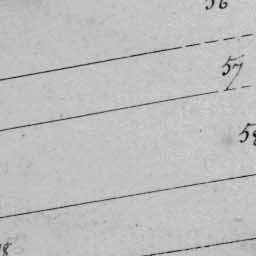 56
57
58